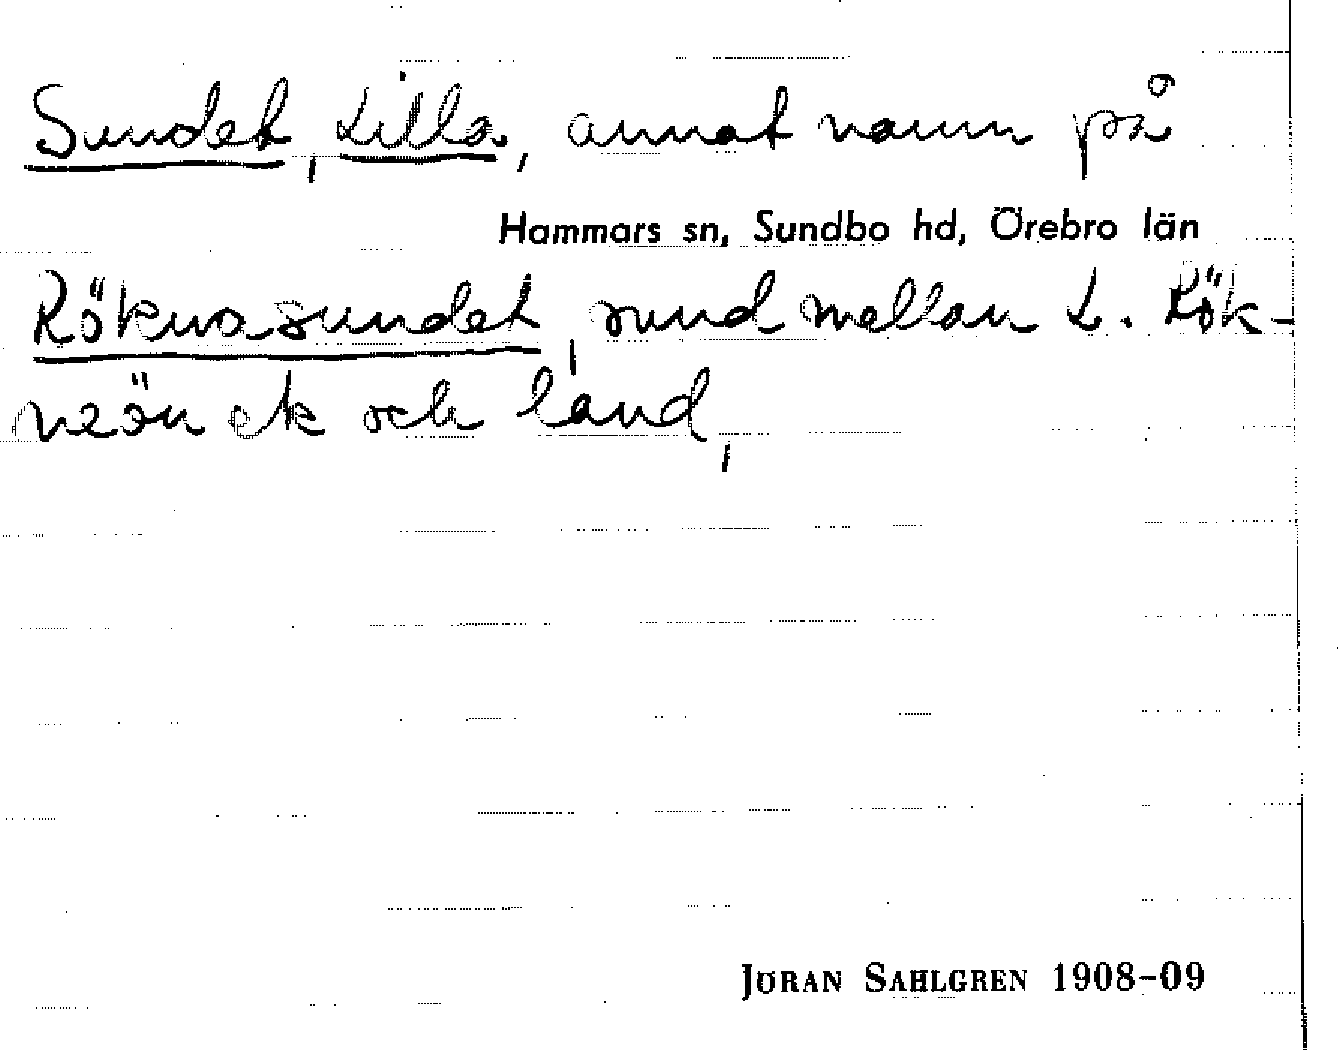 Sundet, Lilla, annat namn på
Hammars sn, Sundbo hd, Örebro län
Röknasundet, sund mellan L. Rök-
neön ck och land,
JÖRAN SAHLGREN 1908-09